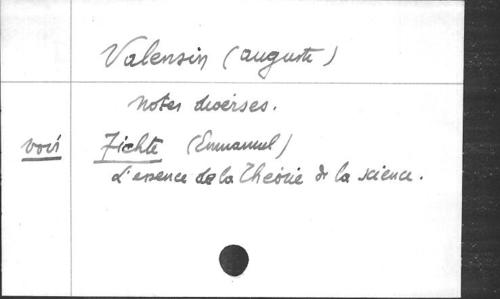 Valensin (auguste)
notes diverses.
voir Fichte (Emmanuel)
L'essence de la Théorie de la science.